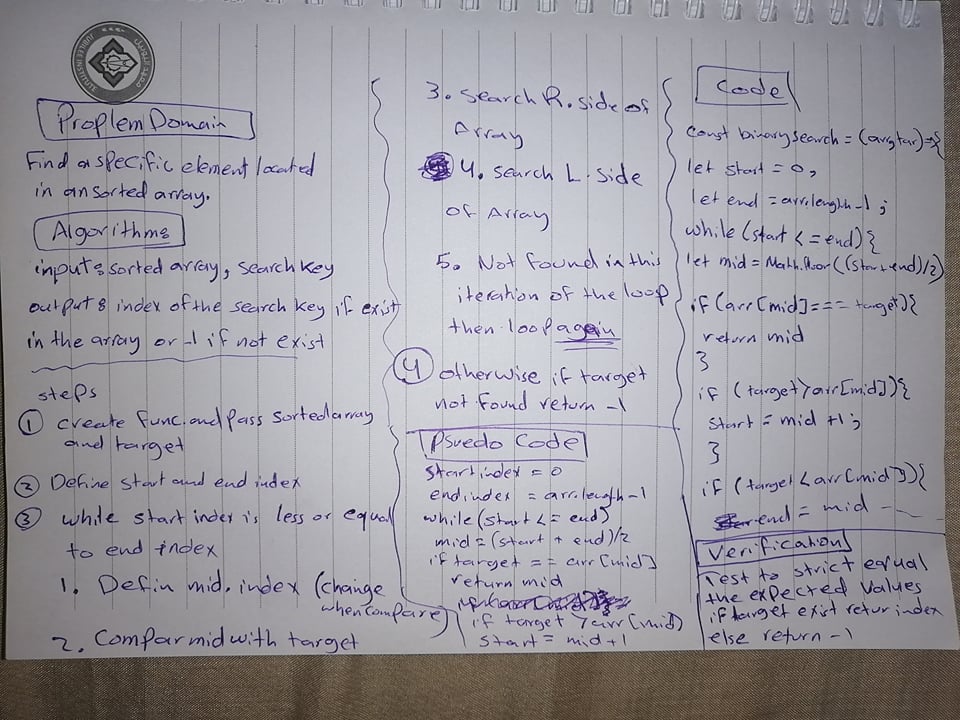 Proplem Domain
Find a specific element located
in an sorted array.
Algorithms
input: sorted array, search key
output: index of the search key if exist
in the array or -1 if not exist
steps
1 create func. and pass sorted array
and target
2 Define start and end index
3 while start index is less or equal
to end index
1. Defin mid. index (change
when compare)
2. Compar mid with target
3. search R. side of
Array
4. search L. side
of Array
5. Not found in this
iteration of the loop
then loop again
4 otherwise if target
not found return -1
Psuedo Code
start index = 0
end index = arr.length-1
while (start <= end)
mid = (start + end)/2
if target == arr[mid]
return mid
if target > arr[mid]
start = mid+1
Code
const binarysearch = (arr, tar) => {
let start = 0,
let end = arr.length-1;
while (start <= end) {
let mid = Math.floor((start+end)/2)
if (arr[mid] === target) {
return mid
}
if (target > arr[mid]) {
start = mid +1;
}
if (target < arr[mid]) {
end = mid -
Verification
Test to strict equal
the expected values
if target exist retur index
else return -1